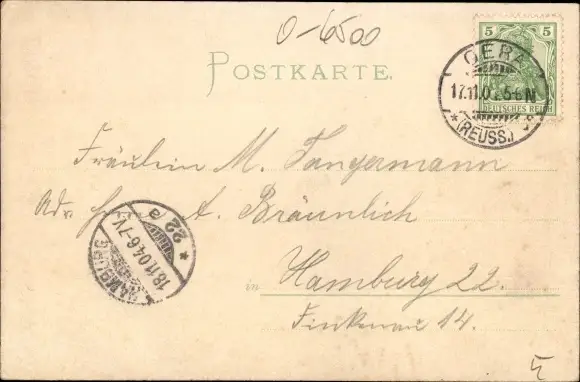 O-6500
POSTKARTE.
5 5
DEUTSCHES REICH
GERA
17.11.0 5-6N
(REUSS.)
Fräulein M. Tangermann
Adr. A. Bräunlich
HAMBURG
18.11.04.6-7V.
* 22 a
in Hamburg 22.
Finkenau 14.